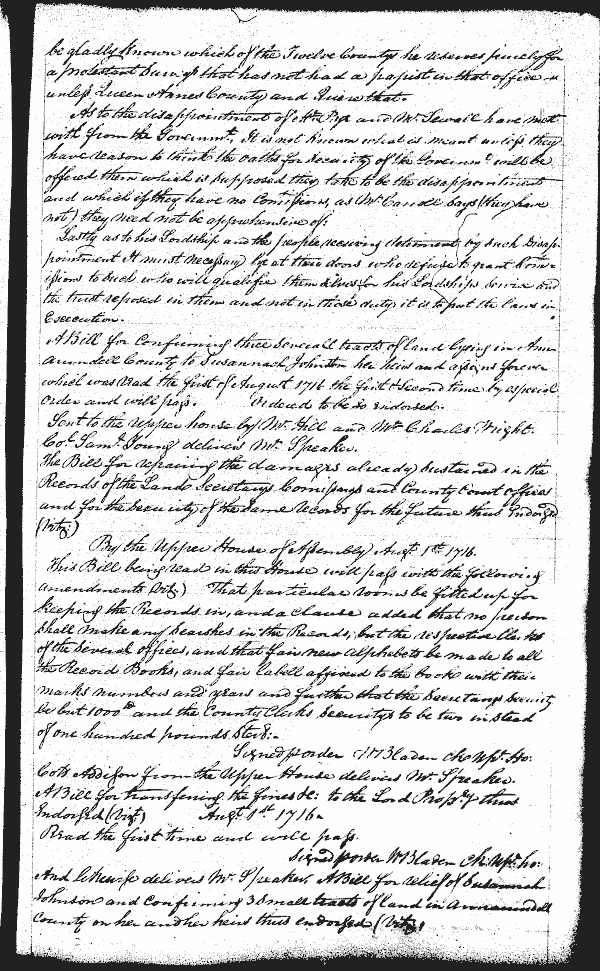 be gladly known which of the Twelve Countys he reserves purely for
a protestant that has not had a papist in that office
unless Queen Annes County and Quere that.
As to the disappointment of Mr. and Mr. Sewall have met
with from the Governmt. It is not known what is meant unless they
have reason to think the oaths for security of the Governmt. will be
offered them which is supposed they take to be the disappointment
and which if they have no Comissions, as Mr. Carroll says (they have
not) they need not be apprehensive of.
Lastly as to his Lordship and the people receiving detriment by such Disap-
pointment It must necessary lye at their doors who refuse to grant Com-
issions to such who will qualifie themselves for his Lordships Service and
the trust reposed in them and not in those duty it is to put the laws in
Execution.
A Bill for Confirming three Severall tracts of land lying in Ann
Arundell County to Susannah Johnson her heirs and assigns forever
which was read the first of August 1716 the first & second time by especial
order and will pass. Ordered to be so endorsed.
Sent to the upper house by Mr. Hill and Mr. Charles Wright.
Col. Saml. Young delivers Mr. Speaker.
The Bill for repairing the damages already sustained in the
Records of the Land Secretarys Comissarys and County Court offices
and for the Security of the same records for the future thus Endorsed
(Vizt.)
By the Upper House of Assembly Augt. 1st. 1716.
This Bill being read in this House will pass with the following
amendments (Vizt.) That particular rooms be fitted up for
keeping the Records in, and a clause added that no person
shall make any searches in the Records, but the respective Clerks
of the Several offices, and that fair new Alphabets be made to all
the Record Books, and fair labell affixed to the book with their
marks numbers and years and further that the Secretarys Security
be but 1000 and the County Clerks Securitys to be two instead
of one hundred pounds Sterg.
Signed p order W Bladen Cl. Upr. Ho:
Coll Addison from the Upper House delivers Mr. Speaker.
A Bill for transferring the fines &c: to the Lord Propry. thus
Endorsed (Vizt.) Augt. 1st. 1716.
Read the first time and will pass.
Signed p order W Bladen Cl. Upr. ho:
And likewise delivers Mr. Speaker, A Bill for relief of Susannah
Johnson and Confirming 3 Small tracts of land in Annarundell
County on her and her heirs thus endorsed (Vizt.)